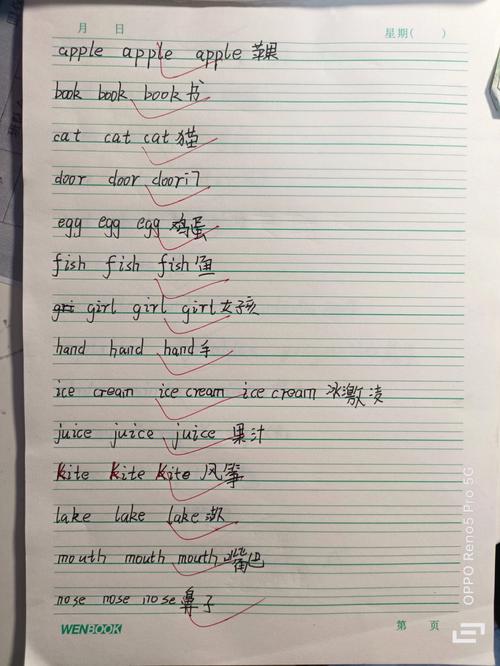 月 日 星期( )
apple apple apple 苹果
book book book 书
cat cat cat 猫
door door door 门
egg egg egg 鸡蛋
fish fish fish 鱼
gri girl girl girl 女孩
hand hand hand 手
ice cream ice cream ice cream 冰激凌
juice juice juice 果汁
kite kite kite 风筝
lake lake lake 湖
mouth mouth mouth 嘴巴
nose nose nose 鼻子
WENBOOK 第 页
OPPO Reno5 Pro 5G